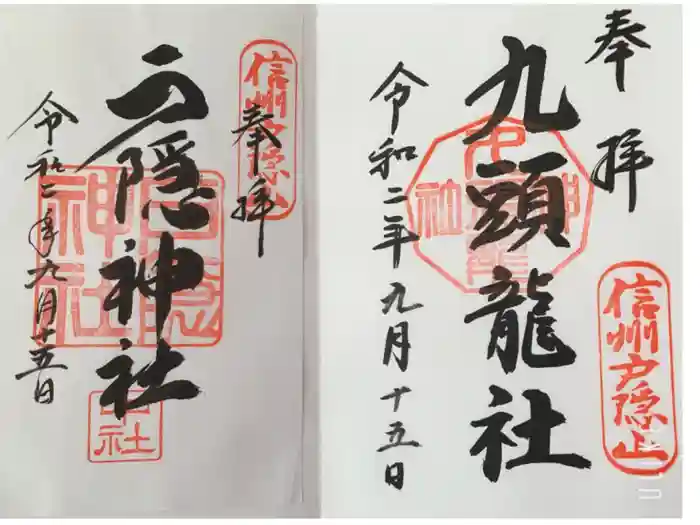 信州戸隠山
奉拝
戸隠神社
戸隠神社
中社
令和二年九月十五日
奉拝
信州戸隠山
九頭龍社
令和二年九月十五日